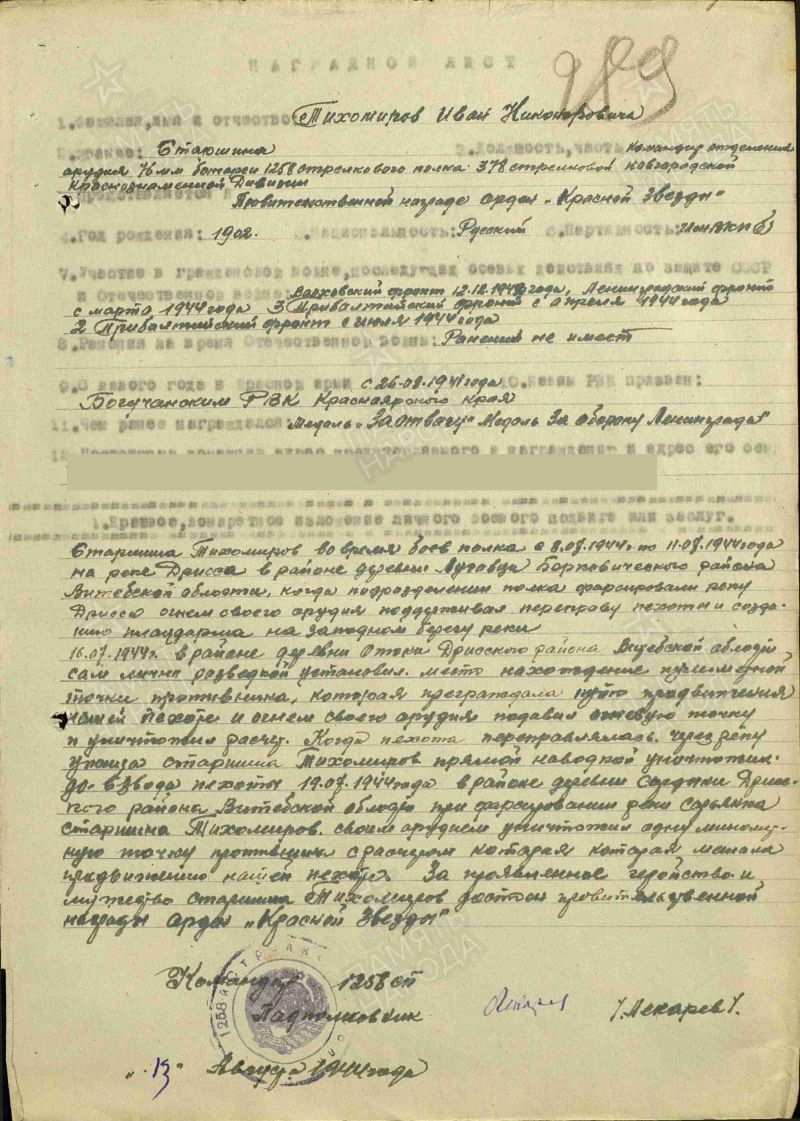 НАГРАДНОЙ ЛИСТ
989
1. Фамилия, имя и отчество Тихомиров Иван Никонорович
2. Звание: Старшина 3. Должность, часть командир отделения
орудия 76 мм батареи 1258 стрелкового полка 378 стрелковой новгородской
Краснознаменной Дивизии
Представляется к Правительственной награде орден „Красной Звезды"
4. Год рождения: 1902. 5. Национальность: Русский 6. Партийность: член ВКП(б)
7. Участие в гражданской войне, последующих боевых действиях по защите СССР
и Отечественной войне: Волховский фронт 12.12.1941 года, Ленинградский фронт
с марта 1944 года 3 Прибалтийский фронт с апреля 1944 года
2 Прибалтийский фронт с июля 1944 года
8. Ранения за время Отечественной войны: Ранения не имеет
9. С какого года в Красной армии с 26.08.1941 года 10. Каким РВК призван:
Богучанским РВК Красноярского края
11. Чем ранее награждался: Медаль „За отвагу" Медаль За оборону Ленинграда"
12. Постоянный домашний адрес представляемого к награждению и адрес его
1. Краткое, конкретное изложение личного боевого подвига или заслуг.
Старшина Тихомиров во время боев полка с 8.07.1944г. по 11.07.1944 года
на реке Дрисса в районе деревни Борковического района
Витебской области, когда подразделении полка форсировали реку
Дрисса огнем своего орудия поддерживал переправу пехоты и созда-
нию плацдарма на западном берегу реки
16.07.1944г. в районе деревни Отоки Дрисского района Витебской области
сам лично разведкой установил место нахождение пулеметной
точки противника, которая преграждала путь продвижения
нашей пехоте и огнем своего орудия подавил огневую точку
и уничтожил расчет. Когда пехота переправлялась через реку
старшина Тихомиров прямой наводкой уничтожил
до взвода пехоты 19.07.1944 года в районе деревни Дрис-
кого района Витебской области при форсировании реки Сарьянка
старшина Тихомиров своим орудием уничтожил одну миномет-
ную точку противника с расчетом которая которая мешала
продвижению нашей пехоте. За проявленное геройство и
мужество старшина Тихомиров достоин правительственной
награды орден „Красной Звезды"
Командир 1258 сп
Подполковник /Лекарев/.
„13" Августа 1944 года
1258 СТРЕЛК
ПАМЯТЬ НАРОДА